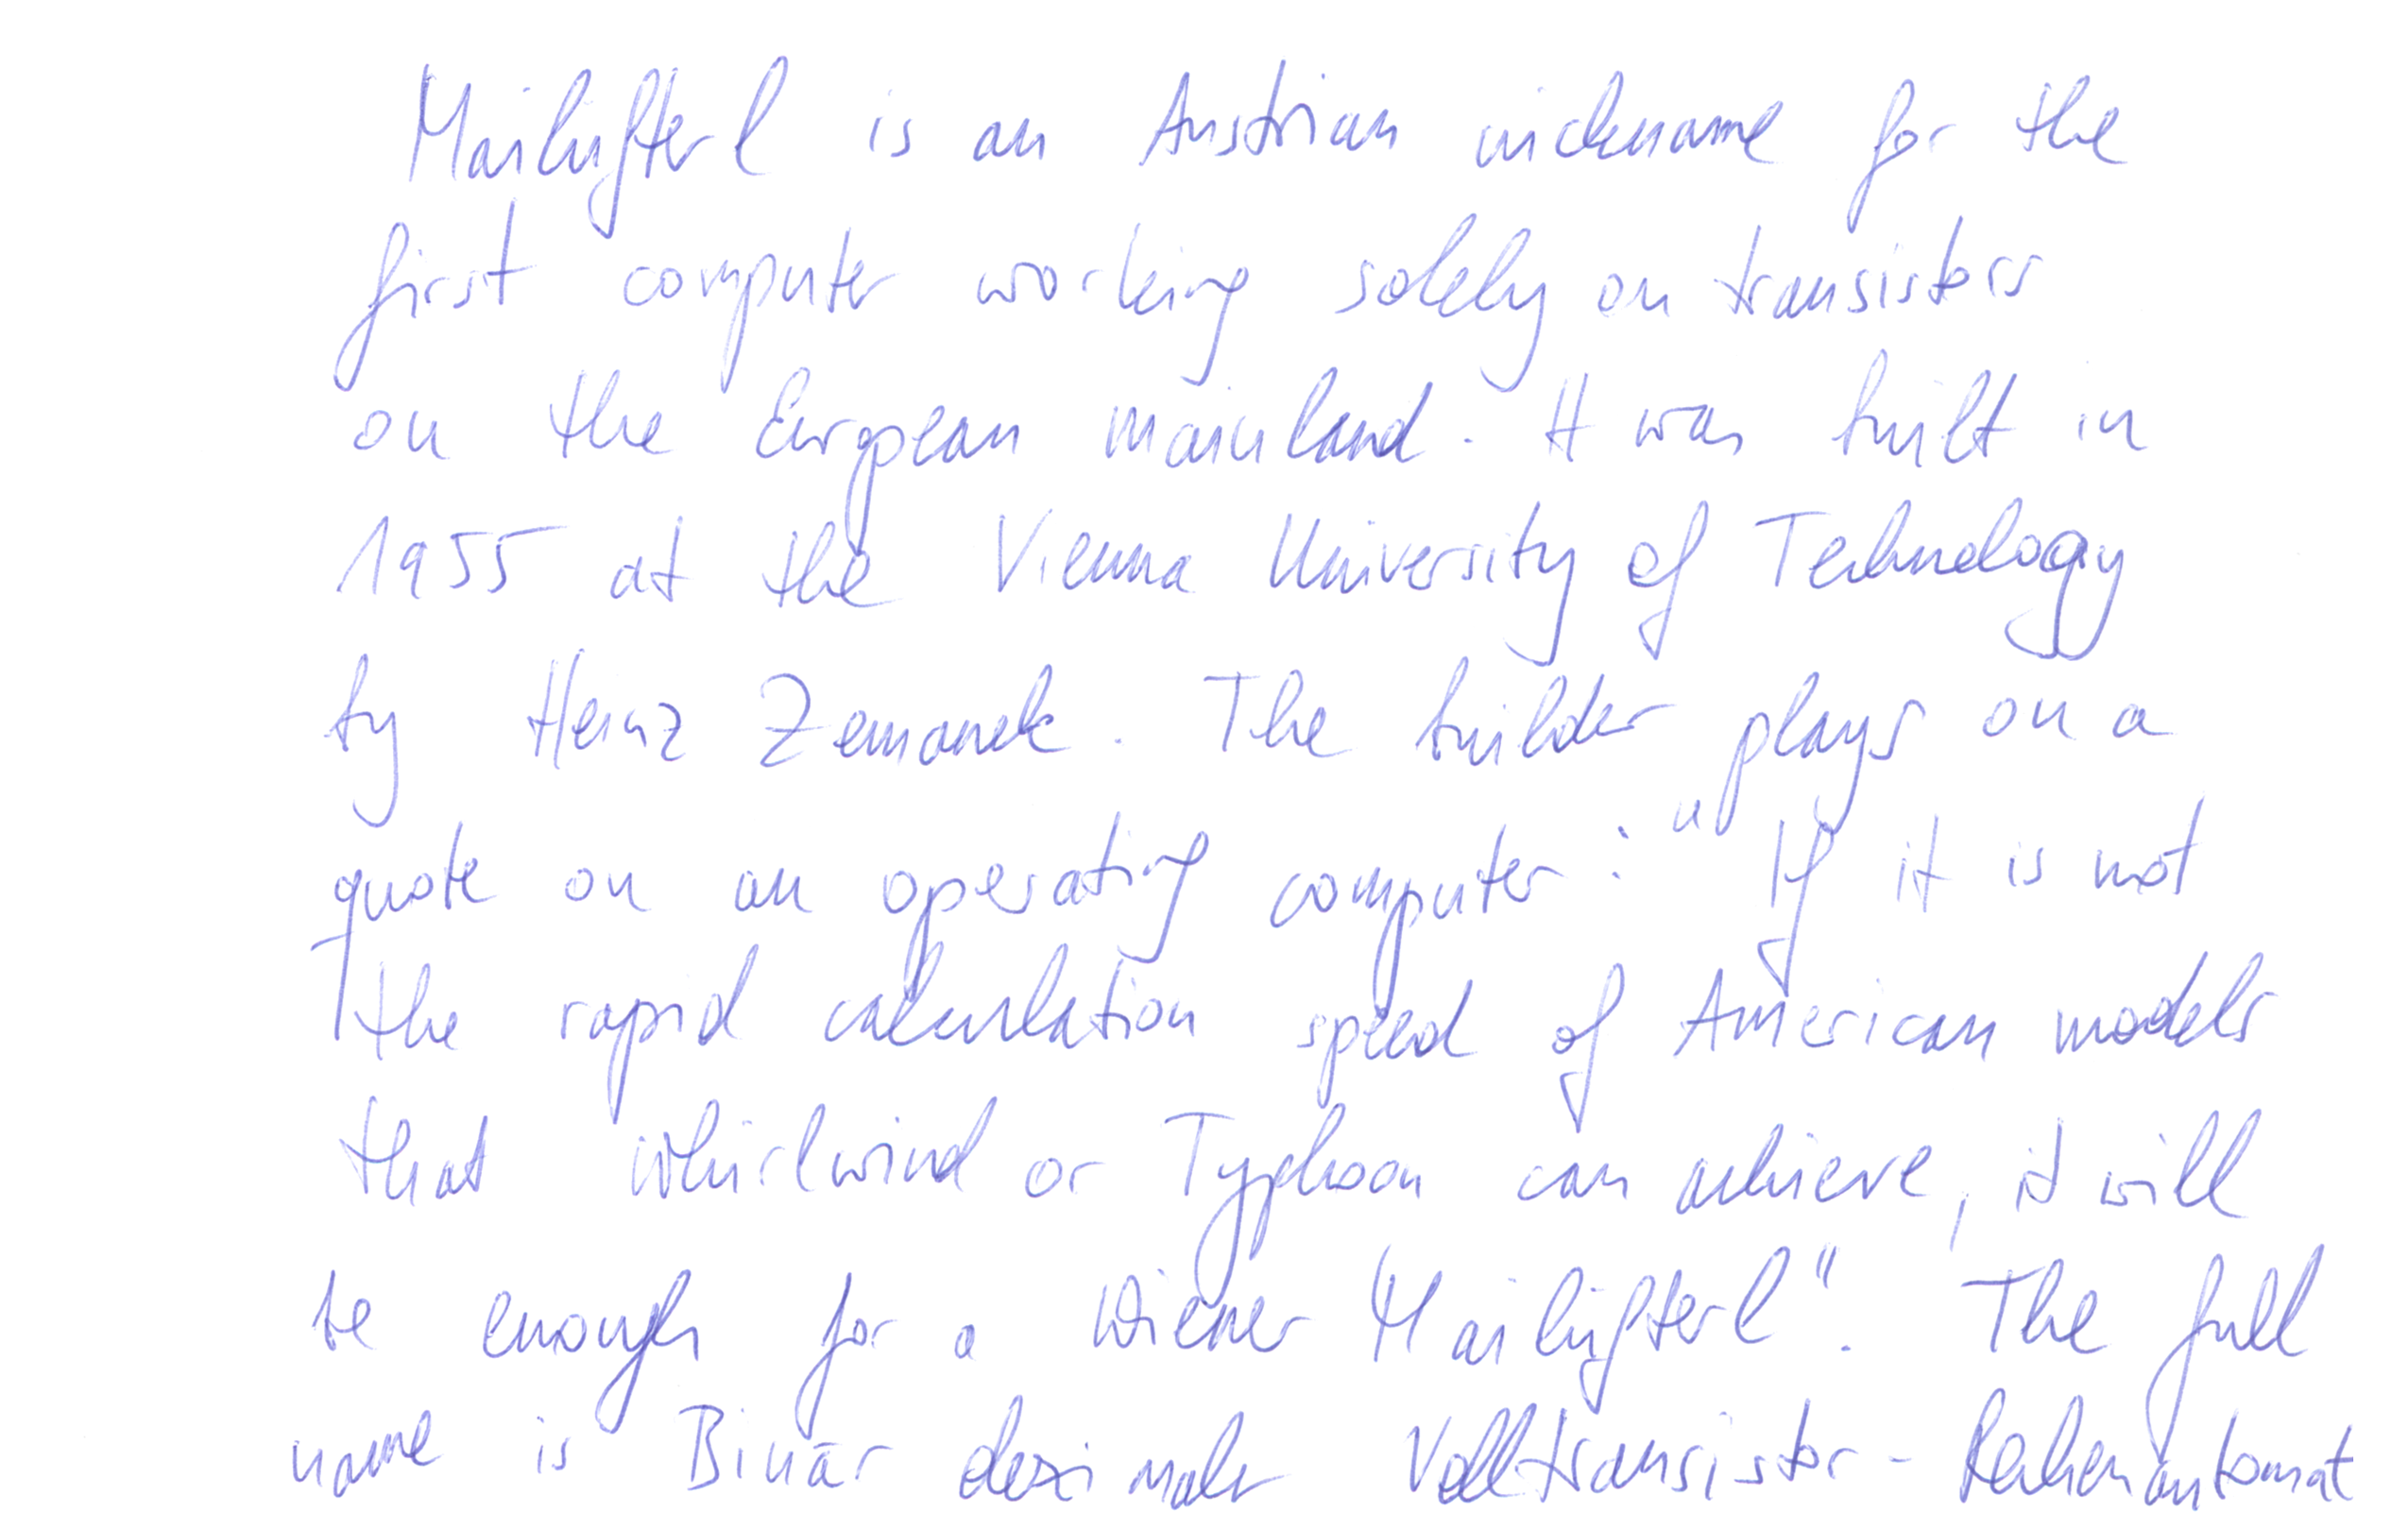 Mailüfterl is an Austrian nickname for the
first computer working solely on transistors
on the European mainland. It was built in
1955 at the Vienna University of Technology
by Heinz Zemanek. The builder plays on a
quote on an operating computer: "If it is not
the rapid calculation speed of American models
that Whirlwind or Typhoon can achieve, it will
be enough for a Wiener Mailüfterl". The full
name is Binär dezimaler Volltransistor-Rechenautomat